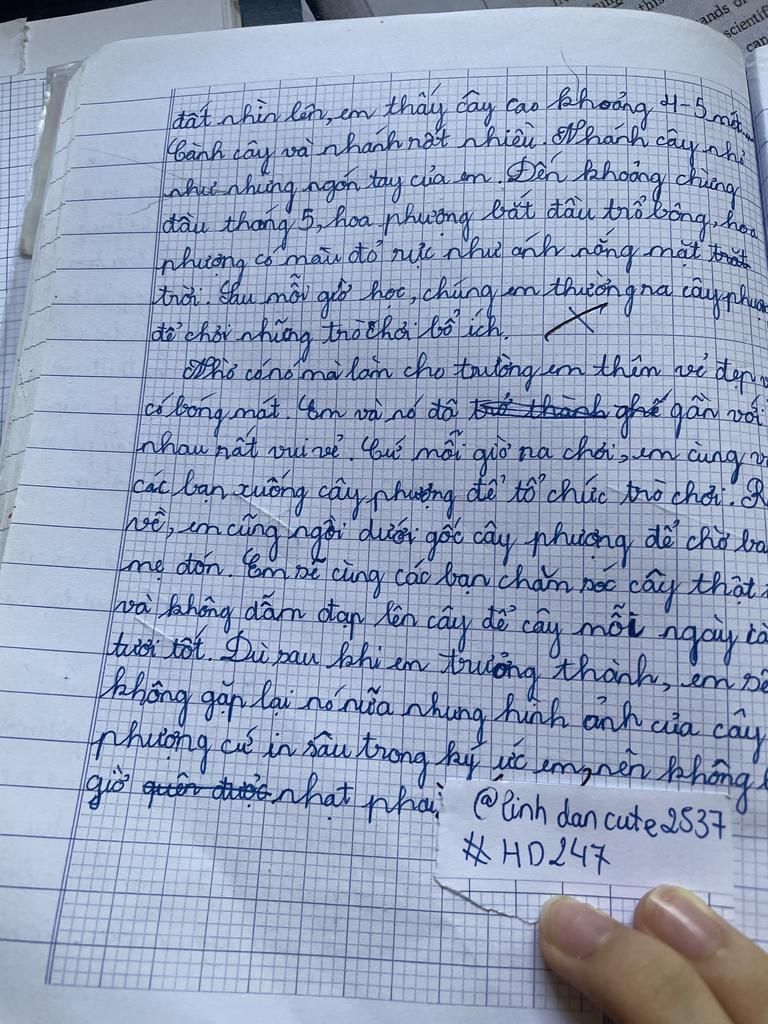 ands of
this
scientifi
can
đất nhìn lên, em thấy cây cao khoảng 4-5 mét
Cành cây và nhánh rất nhiều. Nhánh cây nhỏ
như những ngón tay của em. Đến khoảng chừng
đầu tháng 5, hoa phượng bắt đầu trổ bông, hoa
phượng có màu đỏ rực như ánh nắng mặt trất
trời. Sau mỗi giờ học, chúng em thường ra cây phượ
để chơi những trò chơi bổ ích.
Nhờ có nó mà làm cho trường em thêm vẻ đẹp v
có bóng mát. Em và nó đã trở thành ghế gắn với
nhau rất vui vẻ. Cứ mỗi giờ ra chơi, em cùng v
các bạn xuống cây phượng để tổ chức trò chơi. R
về, em cũng ngồi dưới gốc cây phượng để chờ ba
mẹ đón. Em sẽ cùng các bạn chăm sóc cây thật
và không dẫm đạp lên cây để cây mỗi ngày cà
tươi tốt. Dù sau khi em trưởng thành, em sẽ
không gặp lại nó nữa nhưng hình ảnh của cây
phượng cứ in sâu trong ký ức em, nên không b
giờ quên được nhạt phai.
@linh dan cute2537
#HD247